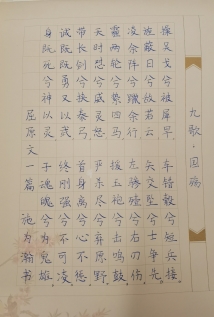 九歌·国殇
操吴戈兮被犀甲 车错毂兮短兵接
旌蔽日兮敌若云 矢交坠兮士争先
凌余阵兮躐余行 左骖殪兮右刃伤
霾两轮兮絷四马 援玉枹兮击鸣鼓
天时怼兮威灵怒 严杀尽兮弃原野
带长剑兮挟秦弓 首身离兮心不惩
诚既勇兮又以武 终刚强兮不可凌
身既死兮神以灵 子魂魄兮为鬼雄
屈原文一篇 池为翰书